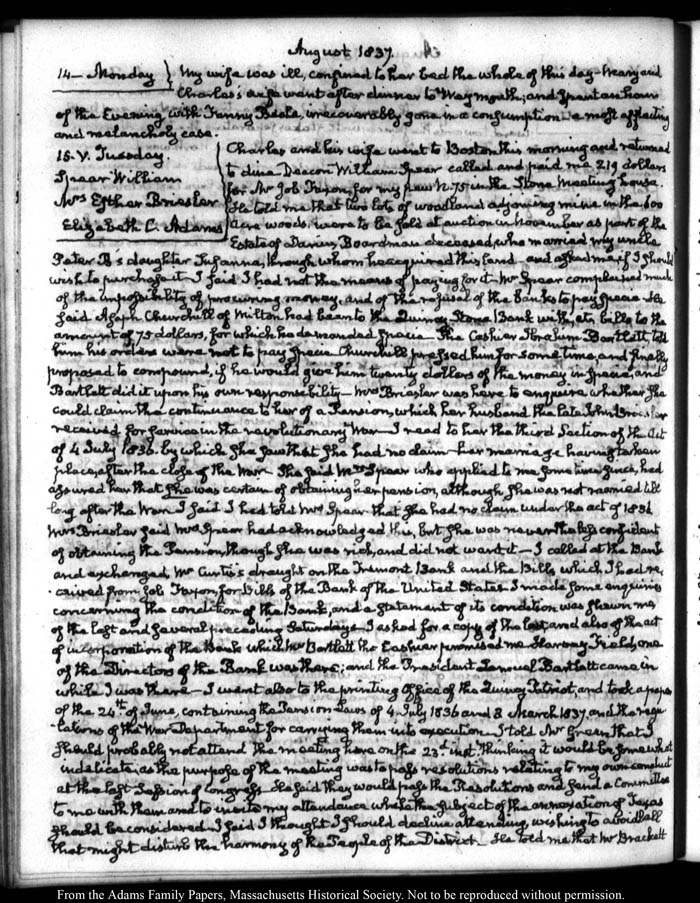 August 1837
14— Monday } My wife was ill, confined to her bed the whole of this day— Mary and
Charles's wife went after dinner to Weymouth; and I spent an hour
of the Evening with Fanny Beale, irrecoverably gone in a consumption— a most affecting
and melancholy case.
15. V. Tuesday.
Spear William
Mrs Esther Briesler
Elizabeth C. Adams
Charles and his wife went to Boston this morning and returned
to dine. Deacon William Spear called and paid me 219 dollars
for Mr Job Faxon, for my pew N. 75 in the Stone Meeting house.
He told me that two lots of woodland adjoining mine in the 600
Acre woods, were to be sold at auction in November as part of the
Estate of Darius Boardman deceased, who married my uncle
Peter B's daughter Susanna, through whom he acquired this land— and asked me if I should
wish to purchase it— I said I had not the means of paying for it— Mr Spear complained much
of the impossibility of procuring money, and of the refusal of the banks to pay specie— He
said Asaph Churchill of Milton had been to the Quincy Stone Bank with its bills to the
amount of 75 dollars, for which he demanded specie— The Cashier Ibrahim Bartlett, told
him his orders were not to pay specie— Churchill pressed him for some time, and finally
proposed to compound, if he would give him twenty dollars of the money in specie, and
Bartlett did it upon his own responsibility— Mrs Briesler was here to enquire whether she
could claim the continuance to her of a Pension, which her husband the late John Briesler
received for service in the revolutionary War— I read to her the third Section of the Act
of 4 July 1836. by which she saw that she had no claim— her marriage having taken
place, after the close of the War— She said Mrs Spear who applied to me some time since, had
assured her that she was certain of obtaining her pension, although she was not married till
long after the War— I said I had told Mrs Spear that she had no claim under the act of 1836
Mrs Briesler said Mrs Spear had acknowledged this, but she was nevertheless confident
of obtaining the Pension, though she was rich, and did not want it— I called at the Bank
and exchanged Mr Curtis's draught on the Tremont Bank and the Bills which I had re-
ceived from Job Faxon, for bills of the Bank of the United States— I made some enquiries
concerning the condition of the Bank, and a statement of its condition was shewn me,
of the last and several preceding Saturdays— I asked for a copy of the last and also of the act
of incorporation of the Bank which Mr Bartlett the Cashier promised me— Harvey Field, one
of the Directors of the Bank was there; and the President Lemuel Brackett came in
while I was there— I went also to the printing Office of the Quincy Patriot, and took a paper
of the 24th of June, containing the Pension Laws of 4 July 1836 and 3 March 1837. and the regu-
lations of the War Department for carrying them into execution— I told Mr Green that I
should probably not attend the meeting here on the 23d inst. thinking it would be somewhat
indelicate, as the purpose of the meeting was to pass resolutions relating to my own conduct
at the last Session of Congress— He said they would pass the Resolutions and send a Committee
to me with them and to invite my attendance while the subject of the annexation of Texas
should be considered— I said I thought I should decline attending, wishing to avoid all
that might disturb the harmony of the People of the District— He told me that Mr Brackett
From the Adams Family Papers, Massachusetts Historical Society. Not to be reproduced without permission.